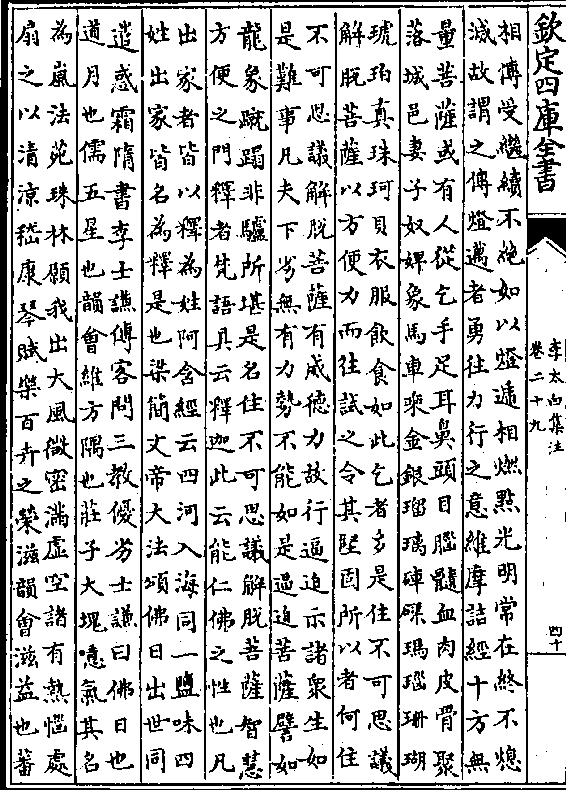 欽定四庫全書
李太白集注
卷二十九
四十
相傳受繼續不絶如以燈遞相燃㸃光明常在終不熄
滅故謂之傳燈邁者勇往力行之意維摩詰經十方無
量菩薩或有人從乞手足耳鼻頭目腦髓血肉皮骨聚
落城邑妻子奴婢象馬車乘金銀瑠璃硨磲瑪瑙珊瑚
琥珀真珠珂貝衣服飲食如此乞者多是住不可思議
解脱菩薩以方便力而往試之令其堅固所以者何住
不可思議解脱菩薩有威德力故行逼迫示諸衆生如
是難事凡夫下劣無有力勢不能如是逼迫菩薩譬如
龍象蹴蹋非驢所堪是名住不可思議解脱菩薩智慧
方便之門釋者梵語具云釋迦此云能仁佛之性也凡
出家者皆以釋為姓阿含經云四河入海同一鹽味四
姓出家皆名為釋是也梁簡文帝大法頌佛日出世同
遣惑霜隋書李士謙傳客問三教優劣士謙曰佛日也
道月也儒五星也韻會維方隅也莊子大塊噫氣其名
為風法苑珠林願我出大風微密滿虛空諸有熱惱處
扇之以清凉嵇康琴賦樂百卉之榮滋韻會滋益也蕃